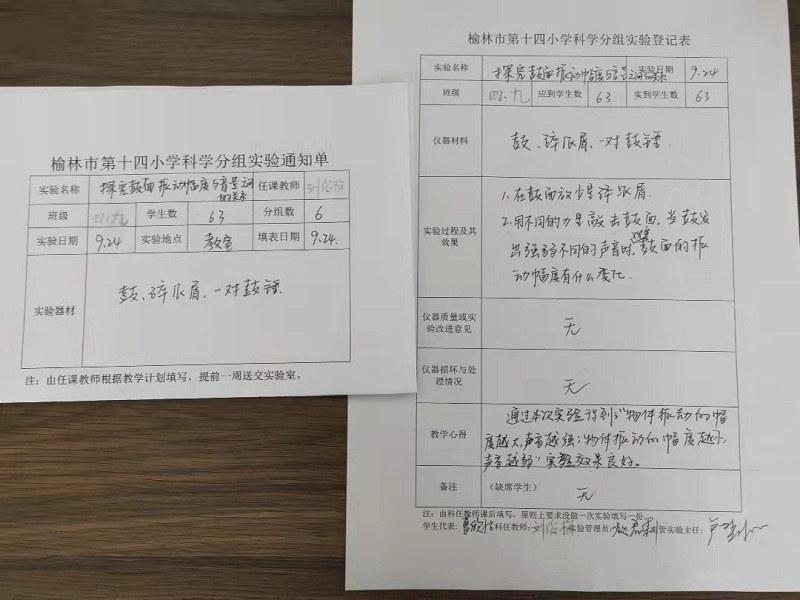 榆林市第十四小学科学分组实验通知单
实验名称 探究鼓面振动幅度与音量之间的关系 任课教师
班级 四.九 学生数 63 分组数 6
实验日期 9.24 实验地点 教室 填表日期 9.24.
实验器材 鼓、碎纸屑、一对鼓锤.
注：由任课教师根据教学计划填写，提前一周送交实验室。
榆林市第十四小学科学分组实验登记表
实验名称 探究鼓面振动幅度与音量之间的关系 实验日期 9.24
班级 四.九 应到学生数 63 实到学生数 63
仪器材料 鼓、碎纸屑、一对鼓锤.
实验过程及其效果
1.在鼓面放少量碎纸屑.
2.用不同的力量敲击鼓面，当鼓发
出强弱不同的声音时，观察鼓面的振
动幅度有什么变化.
仪器质量或实验改进意见 无
仪器损坏与处理情况 无
教学心得
通过本次实验得到"物体振动的幅
度越大,声音越强;物体振动的幅度越小,
声音越弱"实验效果良好。
备注 (缺席学生) 无
注：由科任教师课后填写，原则上要求没做一次实验填写一份。
学生代表: 科任教师: 实验管理员: 主管实验主任: